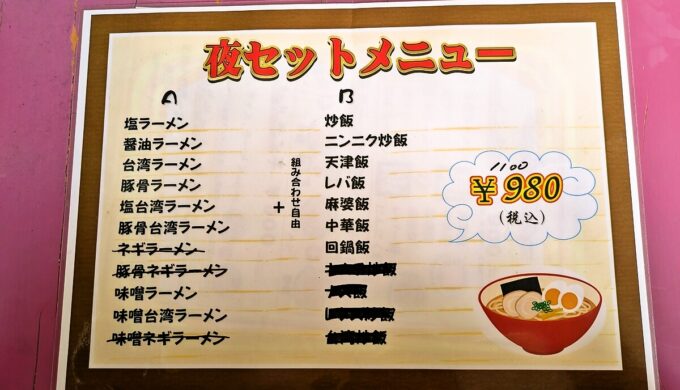 夜セットメニュー
A
B
塩ラーメン
炒飯
醤油ラーメン
ニンニク炒飯
台湾ラーメン
天津飯
豚骨ラーメン
レバ飯
塩台湾ラーメン
+
組み合わせ自由
麻婆飯
豚骨台湾ラーメン
中華飯
ネギラーメン
回鍋飯
豚骨ネギラーメン
炒飯
味噌ラーメン
飯
味噌台湾ラーメン
炒飯
味噌ネギラーメン
台湾炒飯
1100
¥980
(税込)